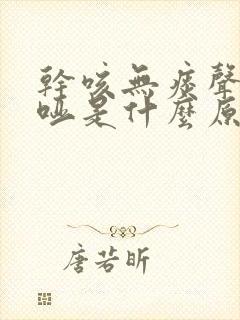 幹咳無痰聲
啞是什麼原
唐若昕